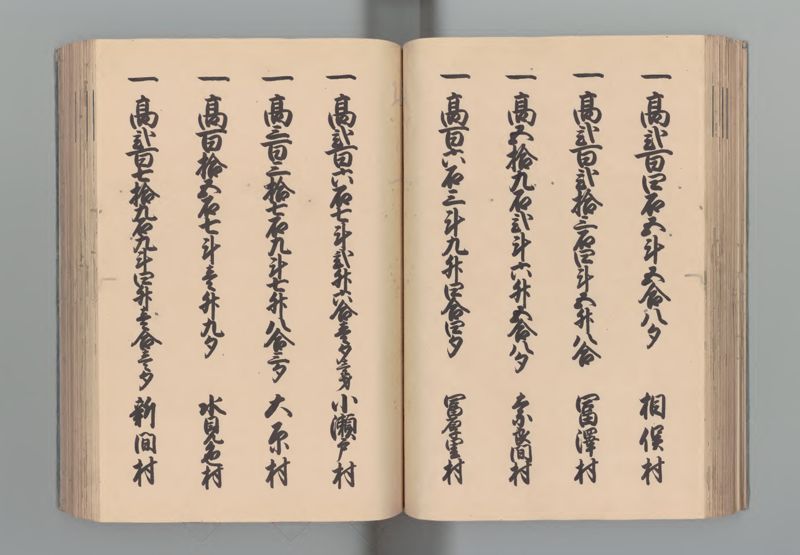 一 高弐百四石五斗五合八夕 相俣村
一 高弐百弐拾三石四斗五升八合 冨澤村
一 高五拾九石弐斗六升五合八夕 奈良間村
一 高百六石三斗九升四合四夕 冨厚里村
一 高弐百六石七斗弐升六合壱夕 小瀬戸村
一 高三百三拾七石九斗七升八合三夕 大原村
一 高百拾五石七斗壱升九夕 水見色村
一 高弐百七拾九石九斗四升壱合三夕 新間村